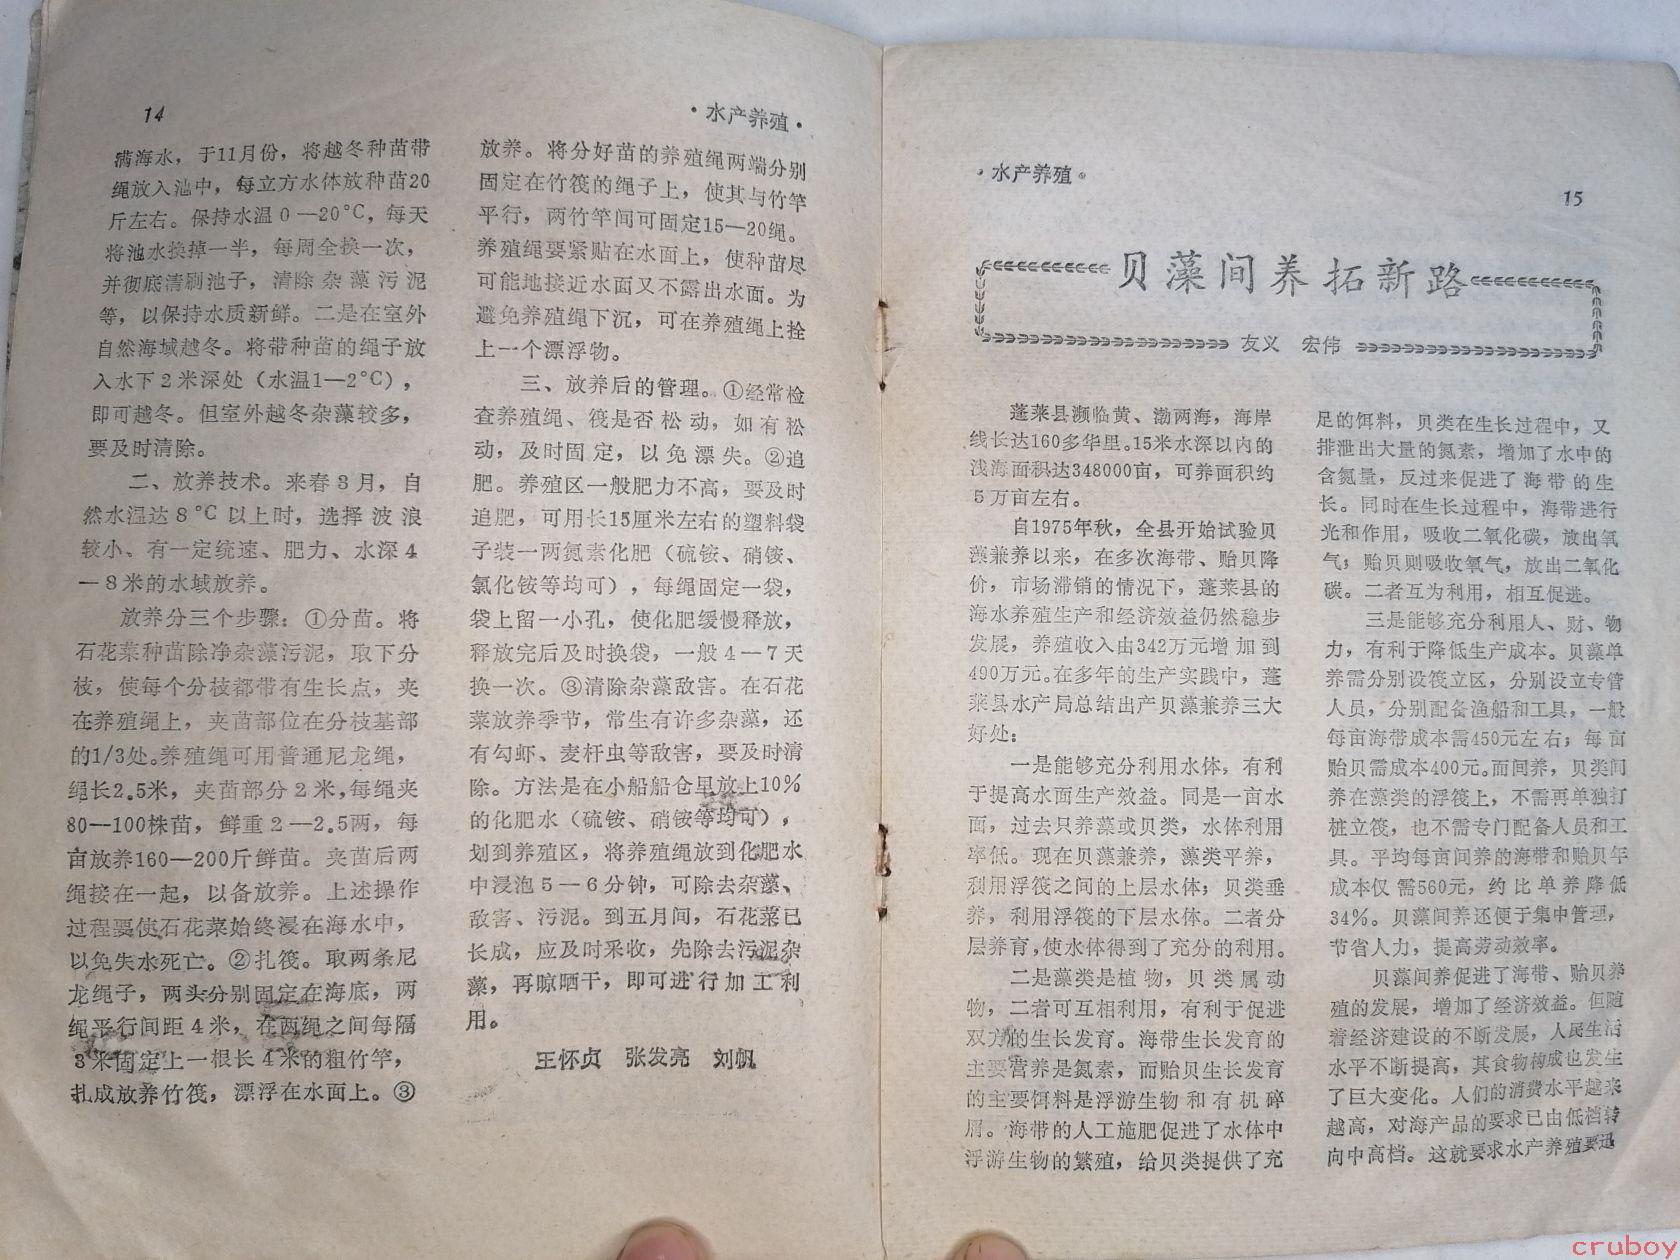 14
·水产养殖·
满海水，于11月份，将越冬种苗带
绳放入池中，每立方水体放种苗20
斤左右。保持水温0—20°C，每天
将池水换掉一半，每周全换一次，
并彻底清刷池子，清除杂藻污泥
等，以保持水质新鲜。二是在室外
自然海域越冬。将带种苗的绳子放
入水下2米深处（水温1—2°C），
即可越冬。但室外越冬杂藻较多，
要及时清除。
二、放养技术。来春3月，自
然水温达8°C以上时，选择波浪
较小、有一定统速、肥力、水深4
—8米的水域放养。
放养分三个步骤：①分苗。将
石花菜种苗除净杂藻污泥，取下分
枝，使每个分枝都带有生长点，夹
在养殖绳上，夹苗部位在分枝基部
的1/3处。养殖绳可用普通尼龙绳，
绳长2.5米，夹苗部分2米，每绳夹
80—100株苗，鲜重2—2.5两，每
亩放养160—200斤鲜苗。夹苗后两
绳接在一起，以备放养。上述操作
过程要使石花菜始终浸在海水中，
以免失水死亡。②扎筏。取两条尼
龙绳子，两头分别固定在海底，两
绳平行间距4米，在两绳之间每隔
3米固定上一根长4米的粗竹竿，
扎成放养竹筏，漂浮在水面上。③
放养。将分好苗的养殖绳两端分别
固定在竹筏的绳子上，使其与竹竿
平行，两竹竿间可固定15—20绳。
养殖绳要紧贴在水面上，使种苗尽
可能地接近水面又不露出水面。为
避免养殖绳下沉，可在养殖绳上拴
上一个漂浮物。
三、放养后的管理。①经常检
查养殖绳、筏是否松动，如有松
动，及时固定，以免漂失。②追
肥。养殖区一般肥力不高，要及时
追肥，可用长15厘米左右的塑料袋
子装一两氮素化肥（硫铵、硝铵、
氯化铵等均可），每绳固定一袋，
袋上留一小孔，使化肥缓慢释放，
释放完后及时换袋，一般4—7天
换一次。③清除杂藻敌害。在石花
菜放养季节，常生有许多杂藻，还
有勾虾、麦杆虫等敌害，要及时清
除。方法是在小船船仓里放上10%
的化肥水（硫铵、硝铵等均可），
划到养殖区，将养殖绳放到化肥水
中浸泡5—6分钟，可除去杂藻、
敌害、污泥。到五月间，石花菜已
长成，应及时采收，先除去污泥杂
藻，再晾晒干，即可进行加工利
用。
王怀贞 张发亮 刘帆
·水产养殖。
15
贝藻间养拓新路
友义 宏伟
蓬莱县濒临黄、渤两海，海岸
线长达160多华里。15米水深以内的
浅海面积达348000亩，可养面积约
5万亩左右。
自1975年秋，全县开始试验贝
藻兼养以来，在多次海带、贻贝降
价，市场滞销的情况下，蓬莱县的
海水养殖生产和经济效益仍然稳步
发展，养殖收入由342万元增加到
490万元。在多年的生产实践中，蓬
莱县水产局总结出产贝藻兼养三大
好处：
一是能够充分利用水体，有利
于提高水面生产效益。同是一亩水
面，过去只养藻或贝类，水体利用
率低。现在贝藻兼养，藻类平养，
利用浮筏之间的上层水体；贝类垂
养，利用浮筏的下层水体。二者分
层养育，使水体得到了充分的利用。
二是藻类是植物，贝类属动
物，二者可互相利用，有利于促进
双方的生长发育。海带生长发育的
主要营养是氮素，而贻贝生长发育
的主要饵料是浮游生物和有机碎
屑。海带的人工施肥促进了水体中
浮游生物的繁殖，给贝类提供了充
足的饵料，贝类在生长过程中，又
排泄出大量的氮素，增加了水中的
含氮量，反过来促进了海带的生
长。同时在生长过程中，海带进行
光和作用，吸收二氧化碳，放出氧
气；贻贝则吸收氧气，放出二氧化
碳。二者互为利用，相互促进。
三是能够充分利用人、财、物
力，有利于降低生产成本。贝藻单
养需分别设筏立区，分别设立专管
人员，分别配备渔船和工具，一般
每亩海带成本需450元左右；每亩
贻贝需成本400元。而间养，贝类间
养在藻类的浮筏上，不需再单独打
桩立筏，也不需专门配备人员和工
具。平均每亩间养的海带和贻贝年
成本仅需560元，约比单养降低
34%。贝藻间养还便于集中管理，
节省人力，提高劳动效率。
贝藻间养促进了海带、贻贝养
殖的发展，增加了经济效益。但随
着经济建设的不断发展，人民生活
水平不断提高，其食物构成也发生
了巨大变化。人们的消费水平越来
越高，对海产品的要求已由低档转
向中高档。这就要求水产养殖要迅
cruboy